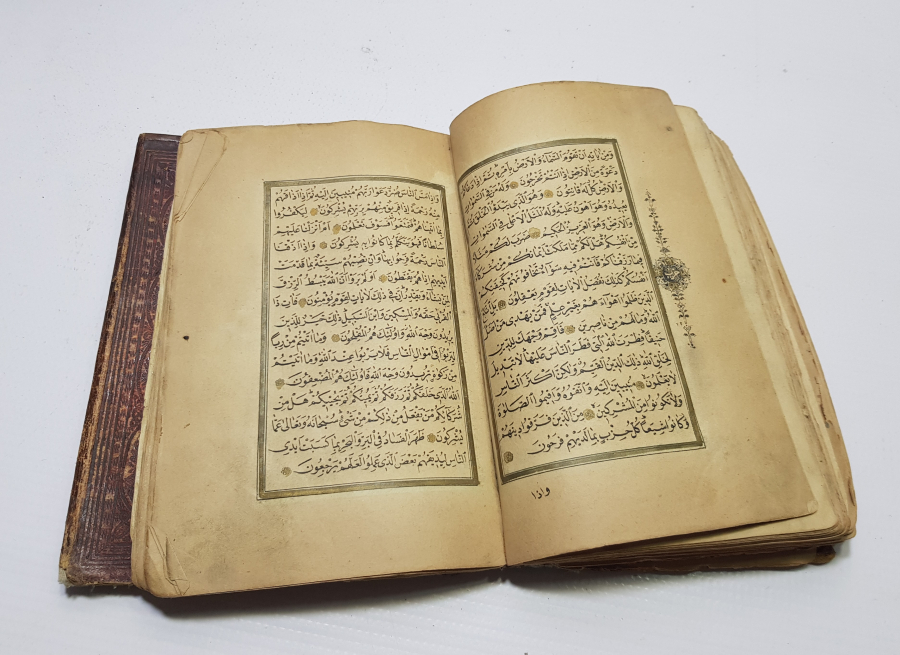 وَمِنْ اٰيَاتِهِ اَنْ تَقُومَ السَّمَاءُ وَالْاَرْضُ بِاَمْرِهِ ثُمَّ اِذَا دَعَاكُمْ
دَعْوَةً مِنَ الْاَرْضِ اِذَا اَنْتُمْ تَخْرُجُونَ وَلَهُ مَنْ فِي السَّمٰوَاتِ
وَالْاَرْضِ كُلٌّ لَهُ قَانِتُونَ وَهُوَ الَّذِي يَبْدَؤُا الْخَلْقَ ثُمَّ
يُعِيدُهُ وَهُوَ اَهْوَنُ عَلَيْهِ وَلَهُ الْمَثَلُ الْاَعْلٰى فِي السَّمٰوَاتِ
وَالْاَرْضِ وَهُوَ الْعَزِيزُ الْحَكِيمُ ضَرَبَ لَكُمْ مَثَلًا
مِنْ اَنْفُسِكُمْ هَلْ لَكُمْ مِمَّا مَلَكَتْ اَيْمَانُكُمْ مِنْ شُرَكَاءَ
فِيمَا رَزَقْنَاكُمْ فَاَنْتُمْ فِيهِ سَوَاءٌ تَخَافُونَهُمْ كَخِيفَتِكُمْ
اَنْفُسَكُمْ كَذٰلِكَ نُفَصِّلُ الْاٰيَاتِ لِقَوْمٍ يَعْقِلُونَ بَلِ اتَّبَعَ
الَّذِينَ ظَلَمُوا اَهْوَاءَهُمْ بِغَيْرِ عِلْمٍ فَمَنْ يَهْدِي مَنْ اَضَلَّ
اللّٰهُ وَمَا لَهُمْ مِنْ نَاصِرِينَ فَاَقِمْ وَجْهَكَ لِلدِّينِ
حَنِيفًا فِطْرَتَ اللّٰهِ الَّتِي فَطَرَ النَّاسَ عَلَيْهَا لَا تَبْدِيلَ
لِخَلْقِ اللّٰهِ ذٰلِكَ الدِّينُ الْقَيِّمُ وَلٰكِنَّ اَكْثَرَ النَّاسِ
لَا يَعْلَمُونَ مُنِيبِينَ اِلَيْهِ وَاتَّقُوهُ وَاَقِيمُوا الصَّلٰوةَ
وَلَا تَكُونُوا مِنَ الْمُشْرِكِينَ مِنَ الَّذِينَ فَرَّقُوا دِينَهُمْ
وَكَانُوا شِيَعًا كُلُّ حِزْبٍ بِمَا لَدَيْهِمْ فَرِحُونَ
واذا
وَاِذَا مَسَّ النَّاسَ ضُرٌّ دَعَوْا رَبَّهُمْ مُنِيبِينَ اِلَيْهِ ثُمَّ اِذَا اَذَاقَهُمْ
مِنْهُ رَحْمَةً اِذَا فَرِيقٌ مِنْهُمْ بِرَبِّهِمْ يُشْرِكُونَ لِيَكْفُرُوا
بِمَا اٰتَيْنَاهُمْ فَتَمَتَّعُوا فَسَوْفَ تَعْلَمُونَ اَمْ اَنْزَلْنَا عَلَيْهِمْ
سُلْطَانًا فَهُوَ يَتَكَلَّمُ بِمَا كَانُوا بِهِ يُشْرِكُونَ وَاِذَا اَذَقْنَا
النَّاسَ رَحْمَةً فَرِحُوا بِهَا وَاِنْ تُصِبْهُمْ سَيِّئَةٌ بِمَا قَدَّمَتْ
اَيْدِيهِمْ اِذَا هُمْ يَقْنَطُونَ اَوَلَمْ يَرَوْا اَنَّ اللّٰهَ يَبْسُطُ الرِّزْقَ
لِمَنْ يَشَاءُ وَيَقْدِرُ اِنَّ فِي ذٰلِكَ لَاٰيَاتٍ لِقَوْمٍ يُؤْمِنُونَ فَاٰتِ ذَا
الْقُرْبٰى حَقَّهُ وَالْمِسْكِينَ وَابْنَ السَّبِيلِ ذٰلِكَ خَيْرٌ لِلَّذِينَ
يُرِيدُونَ وَجْهَ اللّٰهِ وَاُولٰئِكَ هُمُ الْمُفْلِحُونَ وَمَا اٰتَيْتُمْ مِنْ رِبًا
لِيَرْبُوَا فِي اَمْوَالِ النَّاسِ فَلَا يَرْبُوا عِنْدَ اللّٰهِ وَمَا اٰتَيْتُمْ
مِنْ زَكٰوةٍ تُرِيدُونَ وَجْهَ اللّٰهِ فَاُولٰئِكَ هُمُ الْمُضْعِفُونَ
اَللّٰهُ الَّذِي خَلَقَكُمْ ثُمَّ رَزَقَكُمْ ثُمَّ يُمِيتُكُمْ ثُمَّ يُحْيِيكُمْ هَلْ مِنْ
شُرَكَائِكُمْ مَنْ يَفْعَلُ مِنْ ذٰلِكُمْ مِنْ شَيْءٍ سُبْحَانَهُ وَتَعَالٰى عَمَّا
يُشْرِكُونَ ظَهَرَ الْفَسَادُ فِي الْبَرِّ وَالْبَحْرِ بِمَا كَسَبَتْ اَيْدِي
النَّاسِ لِيُذِيقَهُمْ بَعْضَ الَّذِي عَمِلُوا لَعَلَّهُمْ يَرْجِعُونَ